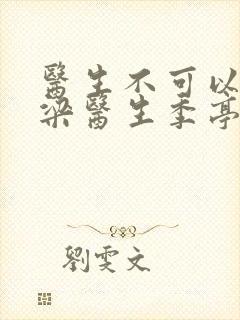 醫生不可以
梁醫生季亭
劉雯文